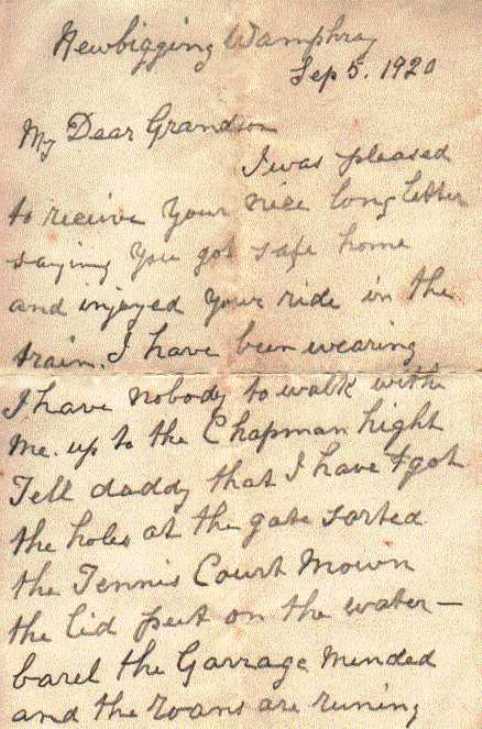 Newbigging Wamphray
Sep 5. 1920
My Dear Grandson
I was pleased
to receive your nice long letter
saying you got safe home
and injoyed your ride in the
train. I have been wearing
I have nobody to walk with
me. up to the Chapman hight
Tell daddy that I have got
the holes at the gate sorted
the Tennis Court Mown
the lid put on the water—
barel the Garrage mended
and the roans are runing